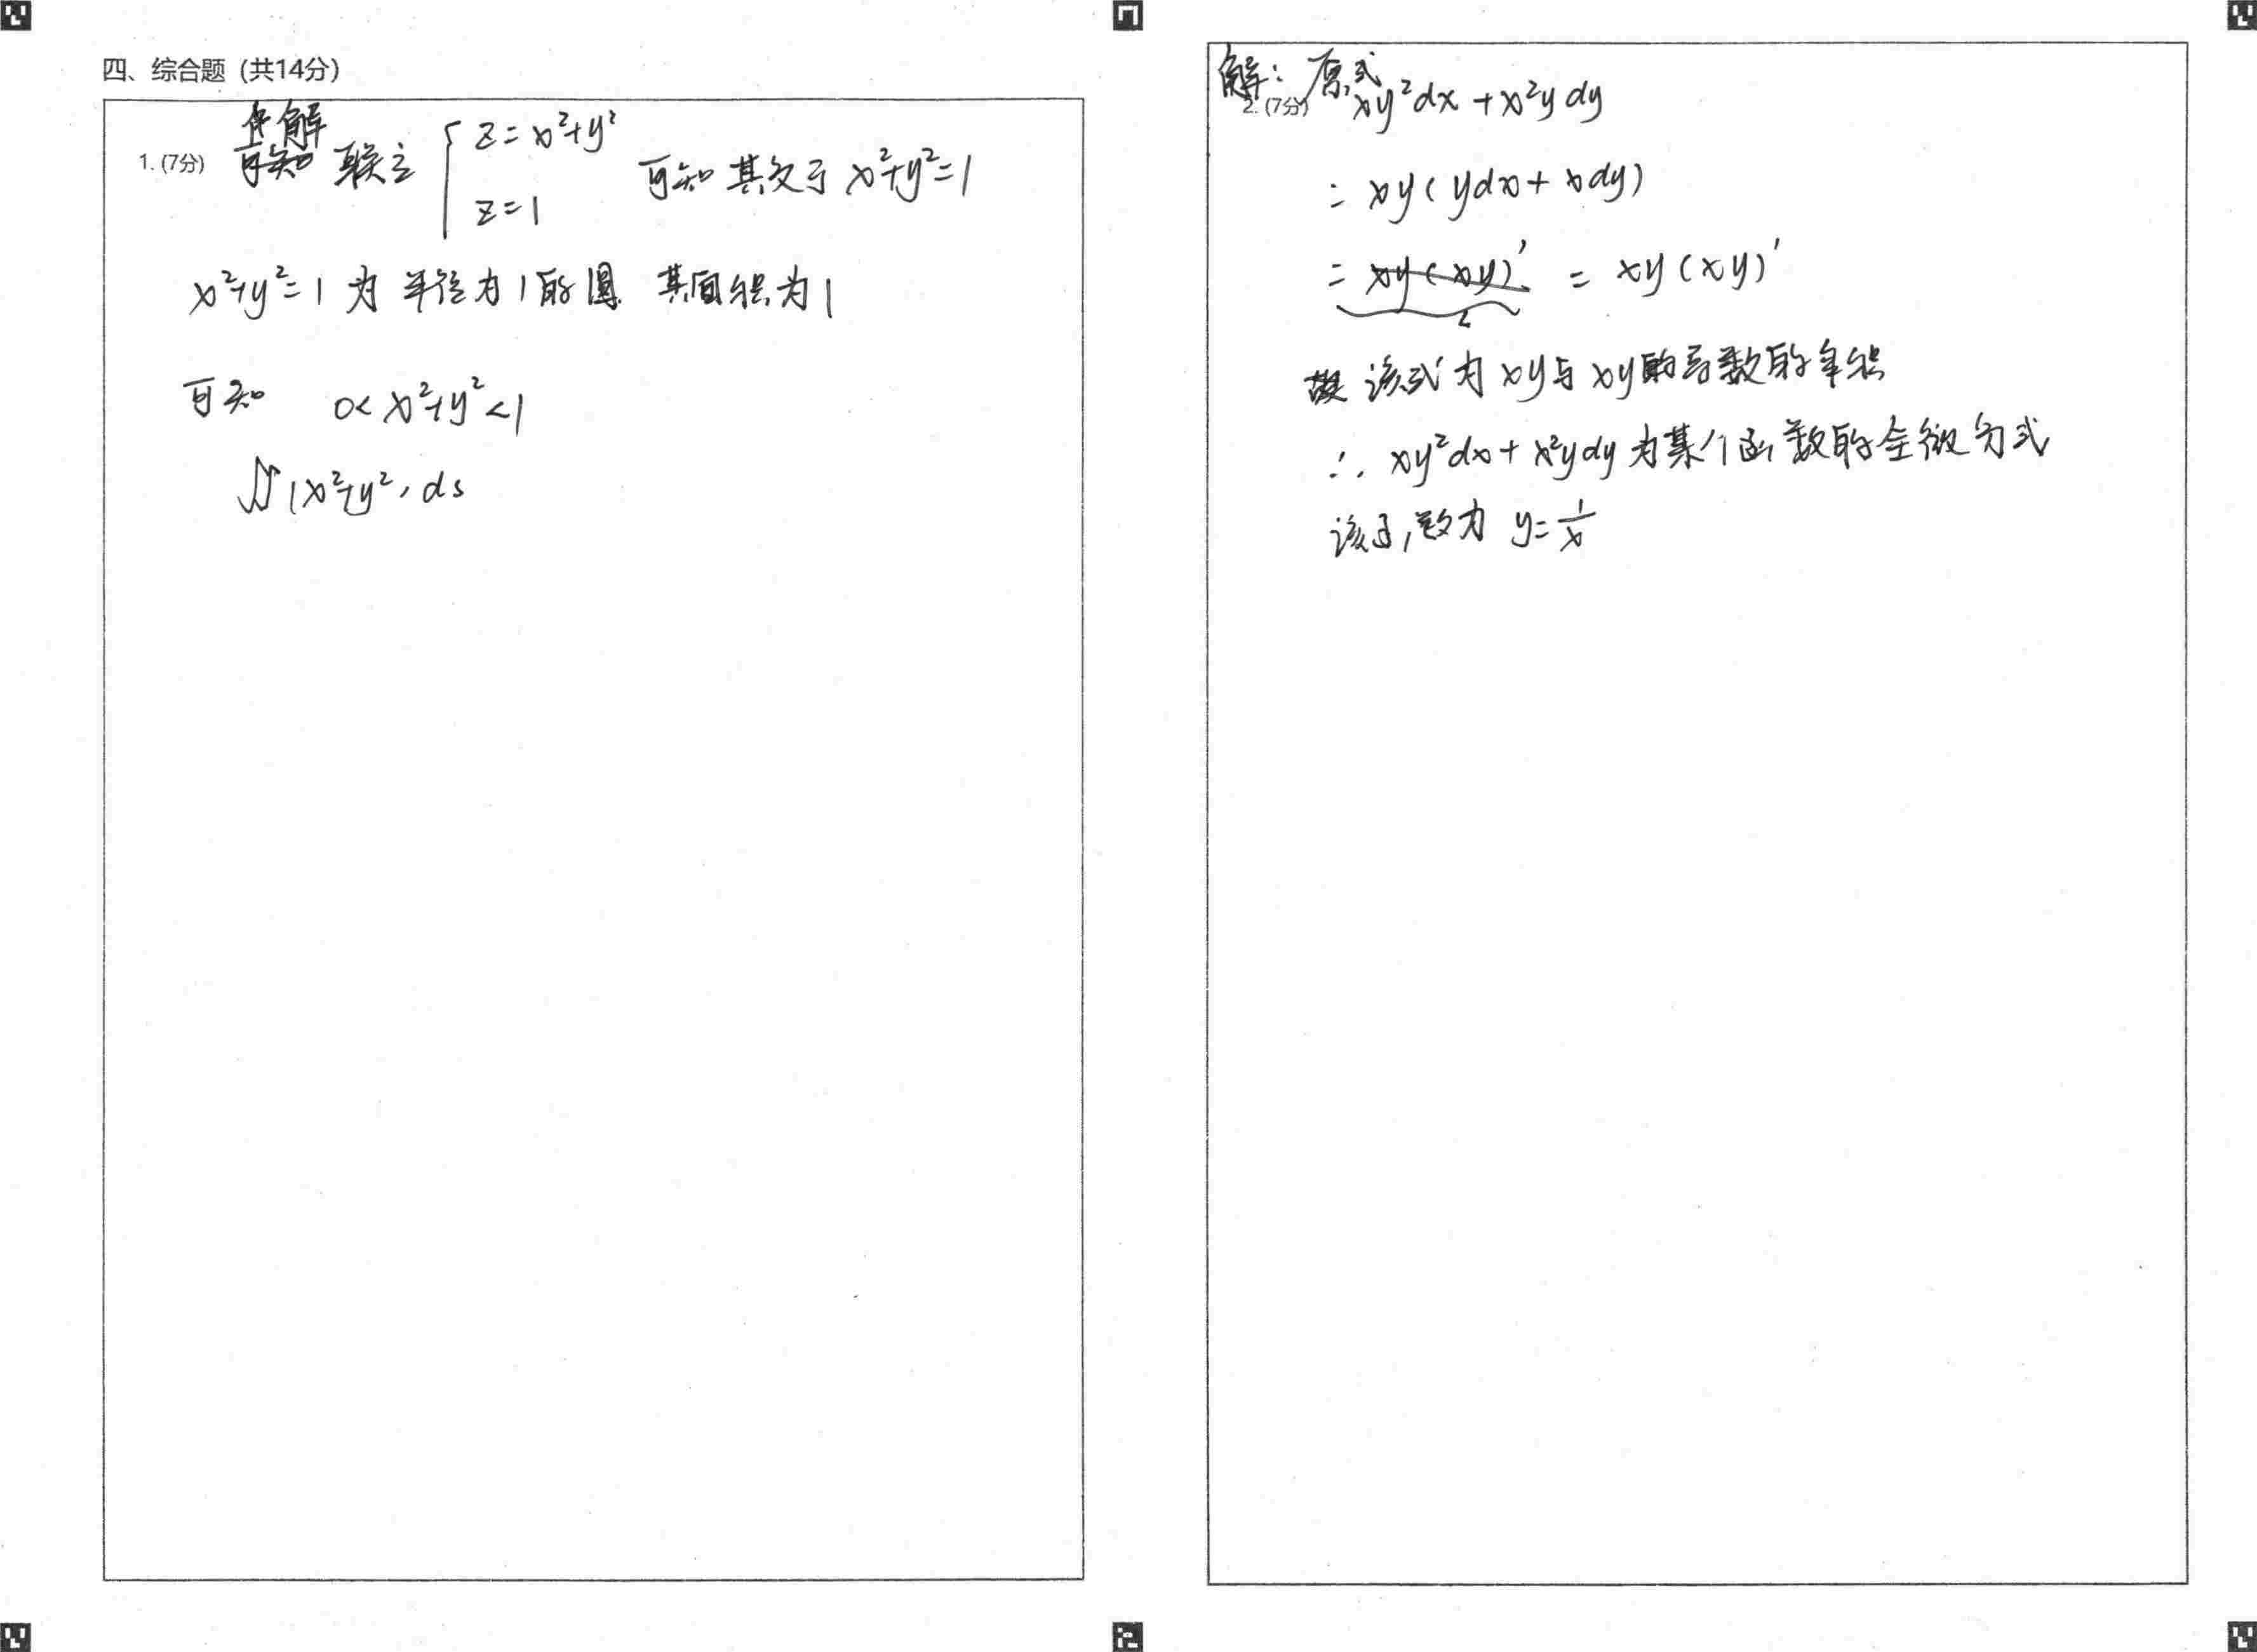 四、综合题 (共14分)
1. (7分) 解 联立 { z = x²+y²
z = 1
可知 其交于 x²+y²=1
x²+y²=1 为 半径为1的圆 其面积为1
可知 0< x²+y² <1
∬(x²+y²) ds
解：原式
2. (7分) xy²dx + x²y dy
= xy(ydx + xdy)
= xy(xy)' = xy(xy)'
故 该式为 xy与 xy的导数的乘积
∴ xy²dx + x²ydy 为某个函数的全微分式
该函数为 y=1/x